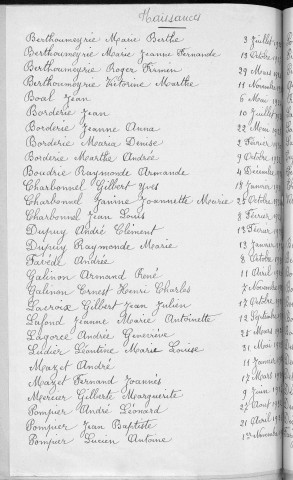 Naissances
Berthoumeyrie Marie Berthe 3 Juillet
Berthoumeyrie Marie Jeanne Fernande 19 Octobre
Berthoumeyrie Roger Firmin 29 Mars
Berthoumeyrie Victorine Marthe 11 Novembre
Boal Jean 6 Mars
Borderie Jean 10 Juillet
Borderie Jeanne Anna 22 Mars
Borderie Maria Denise 2 Février
Borderie Marthe Andrée 9 Octobre
Boudrie Raymonde Armande 4 Décembre
Charbonnel Gilbert Yves 18 Janvier
Charbonnel Janine Jeannette Marie 25 Octobre
Charbonnel Jean Louis 8 Février
Dupuy André Clément 13 Février
Dupuy Raymonde Marie 13 Janvier
Andrée 8 Octobre
Galinon Armand René 11 Avril
Galinon Ernest Henri Charles 7 Novembre
Lacroix Gilbert Jean Julien 17 Octobre
Lafond Jeanne Marie Antoinette 12 Septembre
Lagorce Andrée Geneviève 25 Mars
Ludier Léontine Marie Louise 21 Mars
Mazet André 11 Janvier
Mazet Fernand Joannès 17 Mars
Mercier Gilberte Marguerite 9 Juin
Pompier André Léonard 27 Août
Pompier Jean Baptiste 21 Avril
Pompier Lucien Antoine 1er Novembre